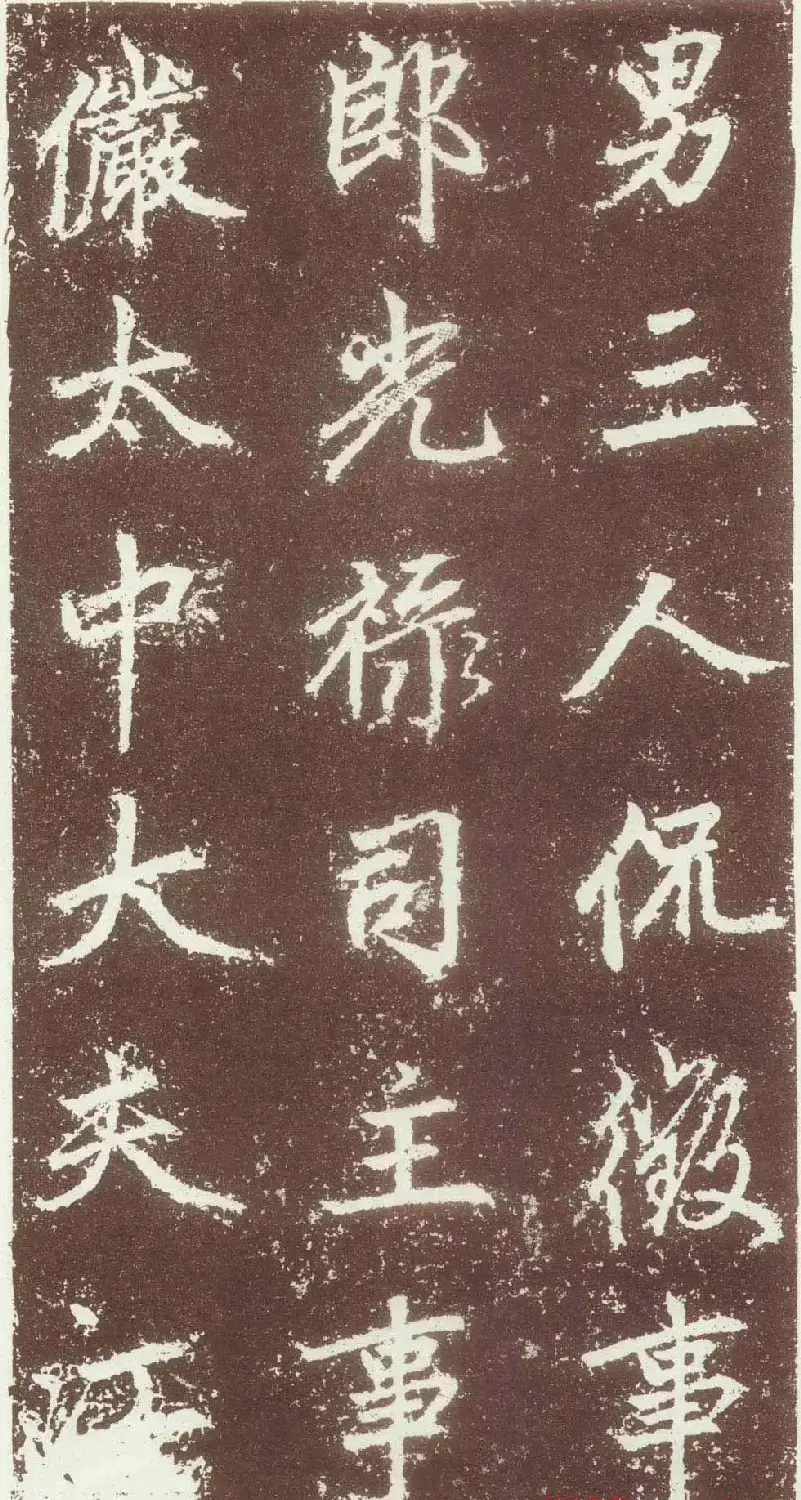 男三人侃徵事
郎光祿司主事
儼太中大夫江